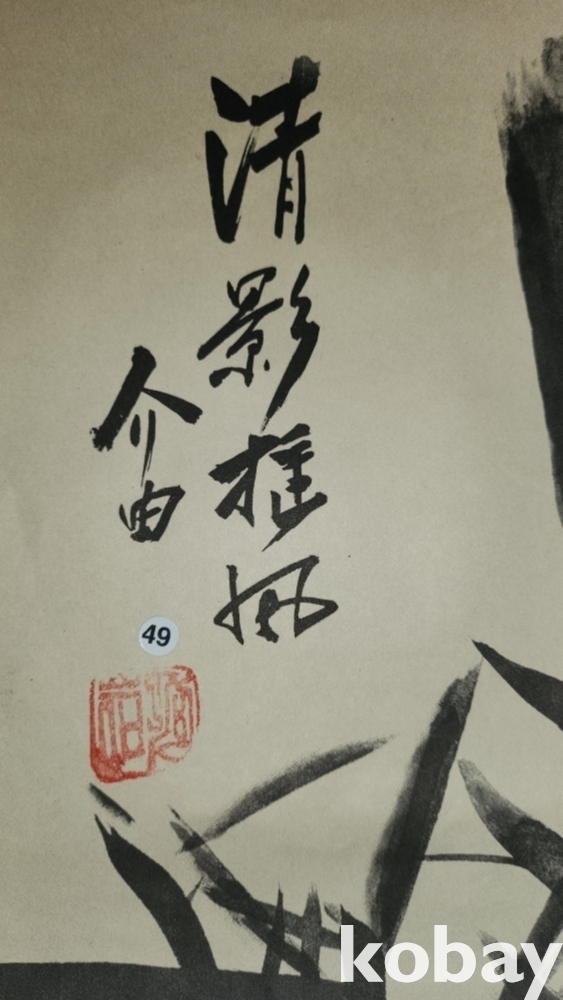 清影搖風
介由
49
kobay